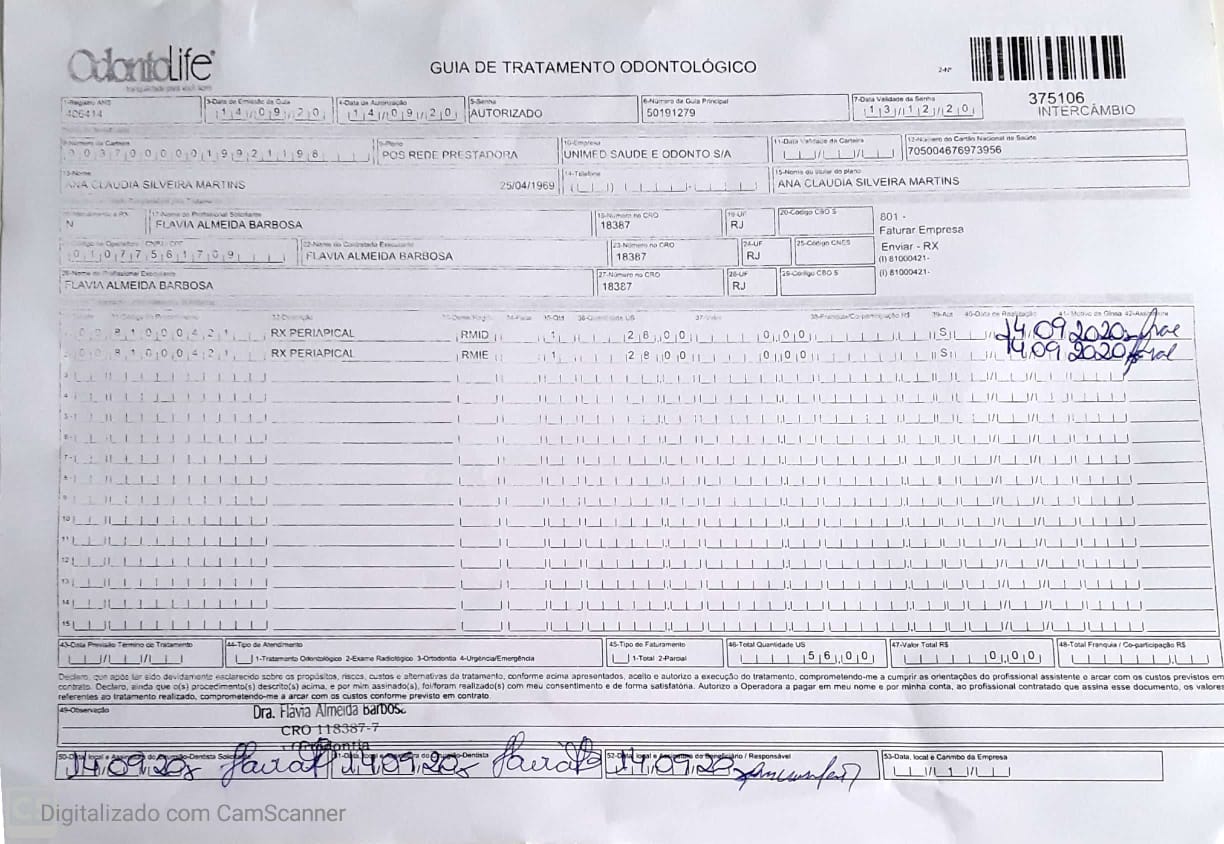 OdontoLife
GUIA DE TRATAMENTO ODONTOLÓGICO
24P
375106
INTERCÂMBIO
1-Registro ANS 3-Data de Emissão da Guia 4-Data de Autorização 5-Senha 6-Número da Guia Principal 7-Data Validade da Senha
406414 14/09/20 14/09/20 AUTORIZADO 50191279 13/12/20
8-Número da Carteira 9-Plano 10-Empresa 11-Data Validade da Carteira 12-Número do Cartão Nacional de Saúde
POS REDE PRESTADORA UNIMED SAUDE E ODONTO S/A 705004676973956
13-Nome 14-Telefone 15-Nome do titular do plano
ANA CLAUDIA SILVEIRA MARTINS 25/04/1969 ANA CLAUDIA SILVEIRA MARTINS
17-Nome do Profissional Solicitante 18-Número no CRO 19-UF 20-Código CBO S
N FLAVIA ALMEIDA BARBOSA 18387 RJ
801 -
Faturar Empresa
Enviar - RX
(I) 81000421-
(I) 81000421-
22-Nome do Contratado Executante 23-Número no CRO 24-UF 25-Código CNES
01077581709 FLAVIA ALMEIDA BARBOSA 18387 RJ
26-Nome do Profissional Executante 27-Número no CRO 28-UF 29-Código CBO S
FLAVIA ALMEIDA BARBOSA 18387 RJ
32-Descrição 34-Face 35-Qtd 36-Quantidade US 37-Valor 38-Franquia/Co-participação R$ 39-Aut 40-Data de Realização 41-Motivo da Glosa 42-Assinatura
81000421 RX PERIAPICAL RMID 1 28,00 0,00 S 14.09 2020
81000421 RX PERIAPICAL RMIE 1 28,00 0,00 S 14.09 2020
3-
4-
5-
6-
7-
8-
9
10
11
12
13
14
15
43-Data Previsão Término do Tratamento 44-Tipo de Atendimento 45-Tipo de Faturamento 46-Total Quantidade US 47-Valor Total R$ 48-Total Franquia / Co-participação R$
1-Tratamento Odontológico 2-Exame Radiológico 3-Ortodontia 4-Urgência/Emergência 1-Total 2-Parcial 56,00 0,00
Declaro, que após ter sido devidamente esclarecido sobre os propósitos, riscos, custos e alternativas de tratamento, conforme acima apresentados, aceito e autorizo a execução do tratamento, comprometendo-me a cumprir as orientações do profissional assistente e arcar com os custos previstos em
contrato. Declaro, ainda que o(s) procedimento(s) descrito(s) acima, e por mim assinado(s), foi/foram realizado(s) com meu consentimento e de forma satisfatória. Autorizo a Operadora a pagar em meu nome e por minha conta, ao profissional contratado que assina esse documento, os valores
referentes ao tratamento realizado, comprometendo-me a arcar com os custos conforme previsto em contrato.
49-Observação
Dra. Flávia Almeida Barbosa
CRO 118387-7
Ortodontia
52-Data, local e Assinatura do Beneficiário / Responsável 53-Data, local e Carimbo da Empresa
14.09.20 14.09.20 14.09.20
Digitalizado com CamScanner